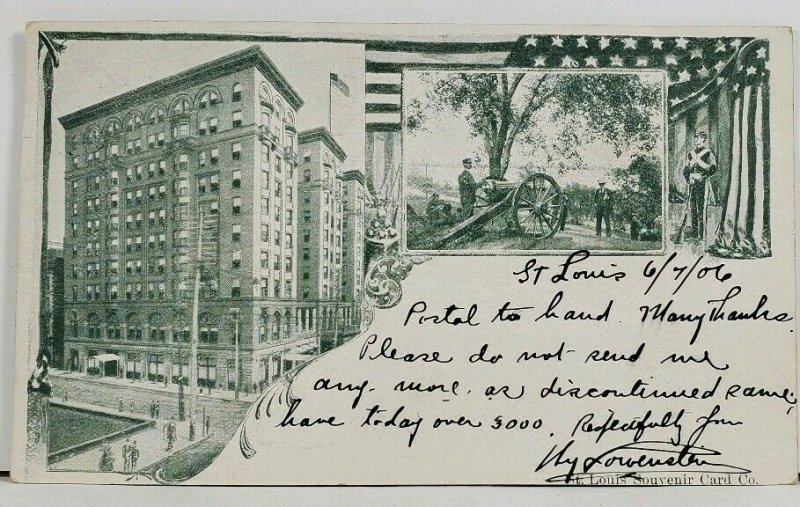 St Louis 6/7/06
Postal to hand. Many thanks.
Please do not send me
any more. as discontinued same,
have today over 3000. Respectfully
Hy Lowenstein
St. Louis Souvenir Card Co.